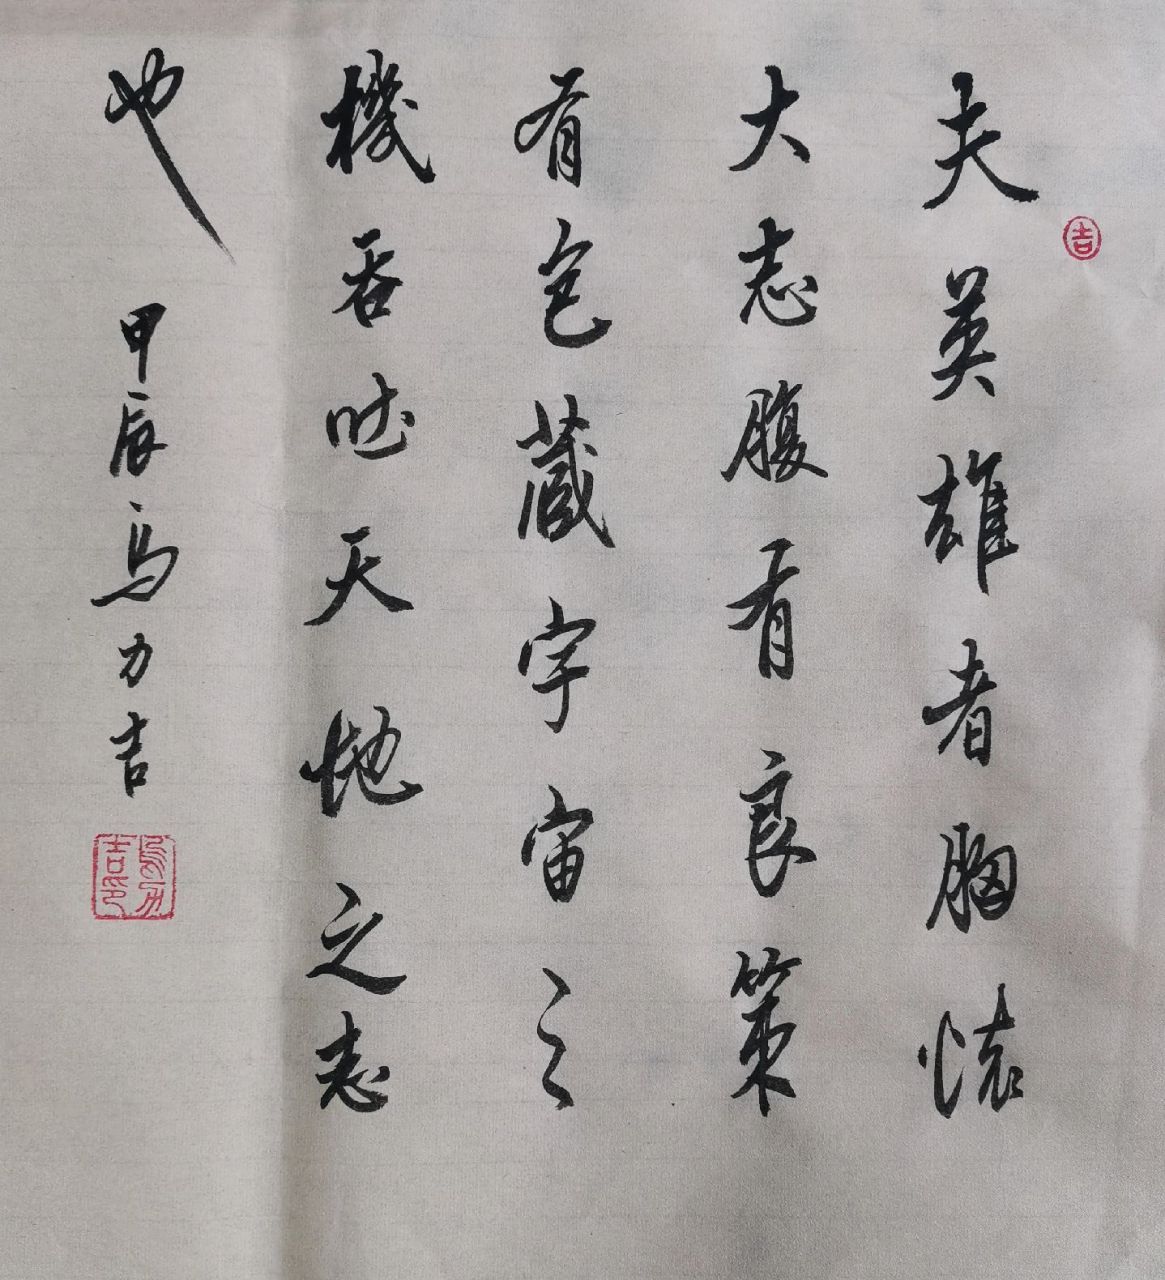 吉
夫英雄者胸懷
大志腹有良策
有包藏宇宙之
機吞吐天地之志
也
甲辰馬力吉